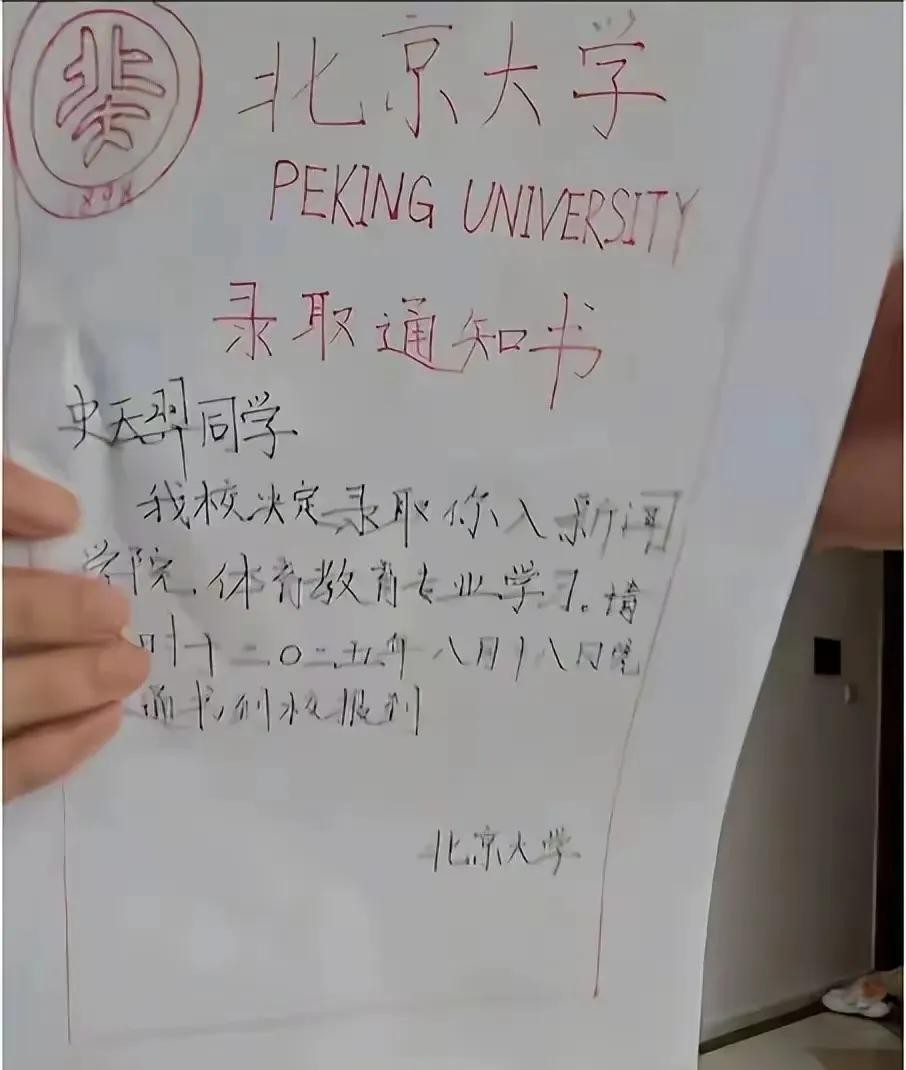 北京大学
PEKING UNIVERSITY
1898
录取通知书
史天羿同学
我校决定录取你入新闻
学院.体育教育专业学习。请
时十二〇二五年八月十八日凭
通书到校报到
北京大学